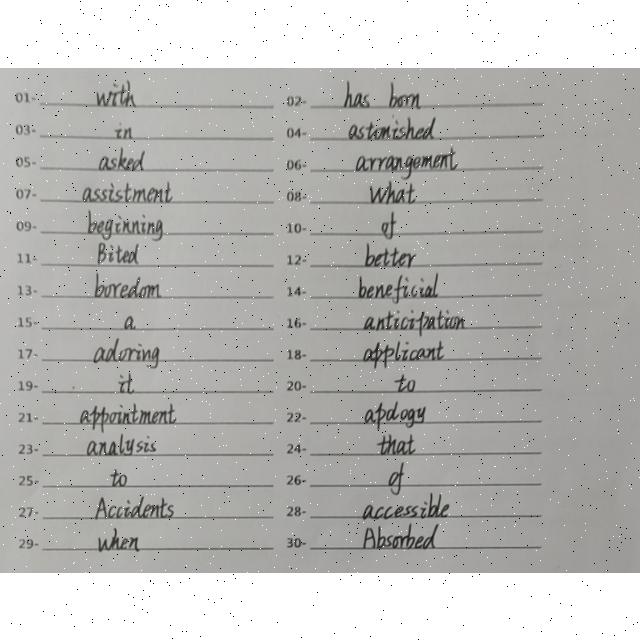 01- with 02- has born
03- in 04- astonished
05- asked 06- arrangement
07- assistment 08- What
09- beginning 10- of
11- Bited 12- better
13- boredom 14- beneficial
15- a 16- anticipation
17- adoring 18- applicant
19- it 20- to
21- appointment 22- apology
23- analysis 24- that
25- to 26- of
27- Accidents 28- accessible
29- when 30- Absorbed